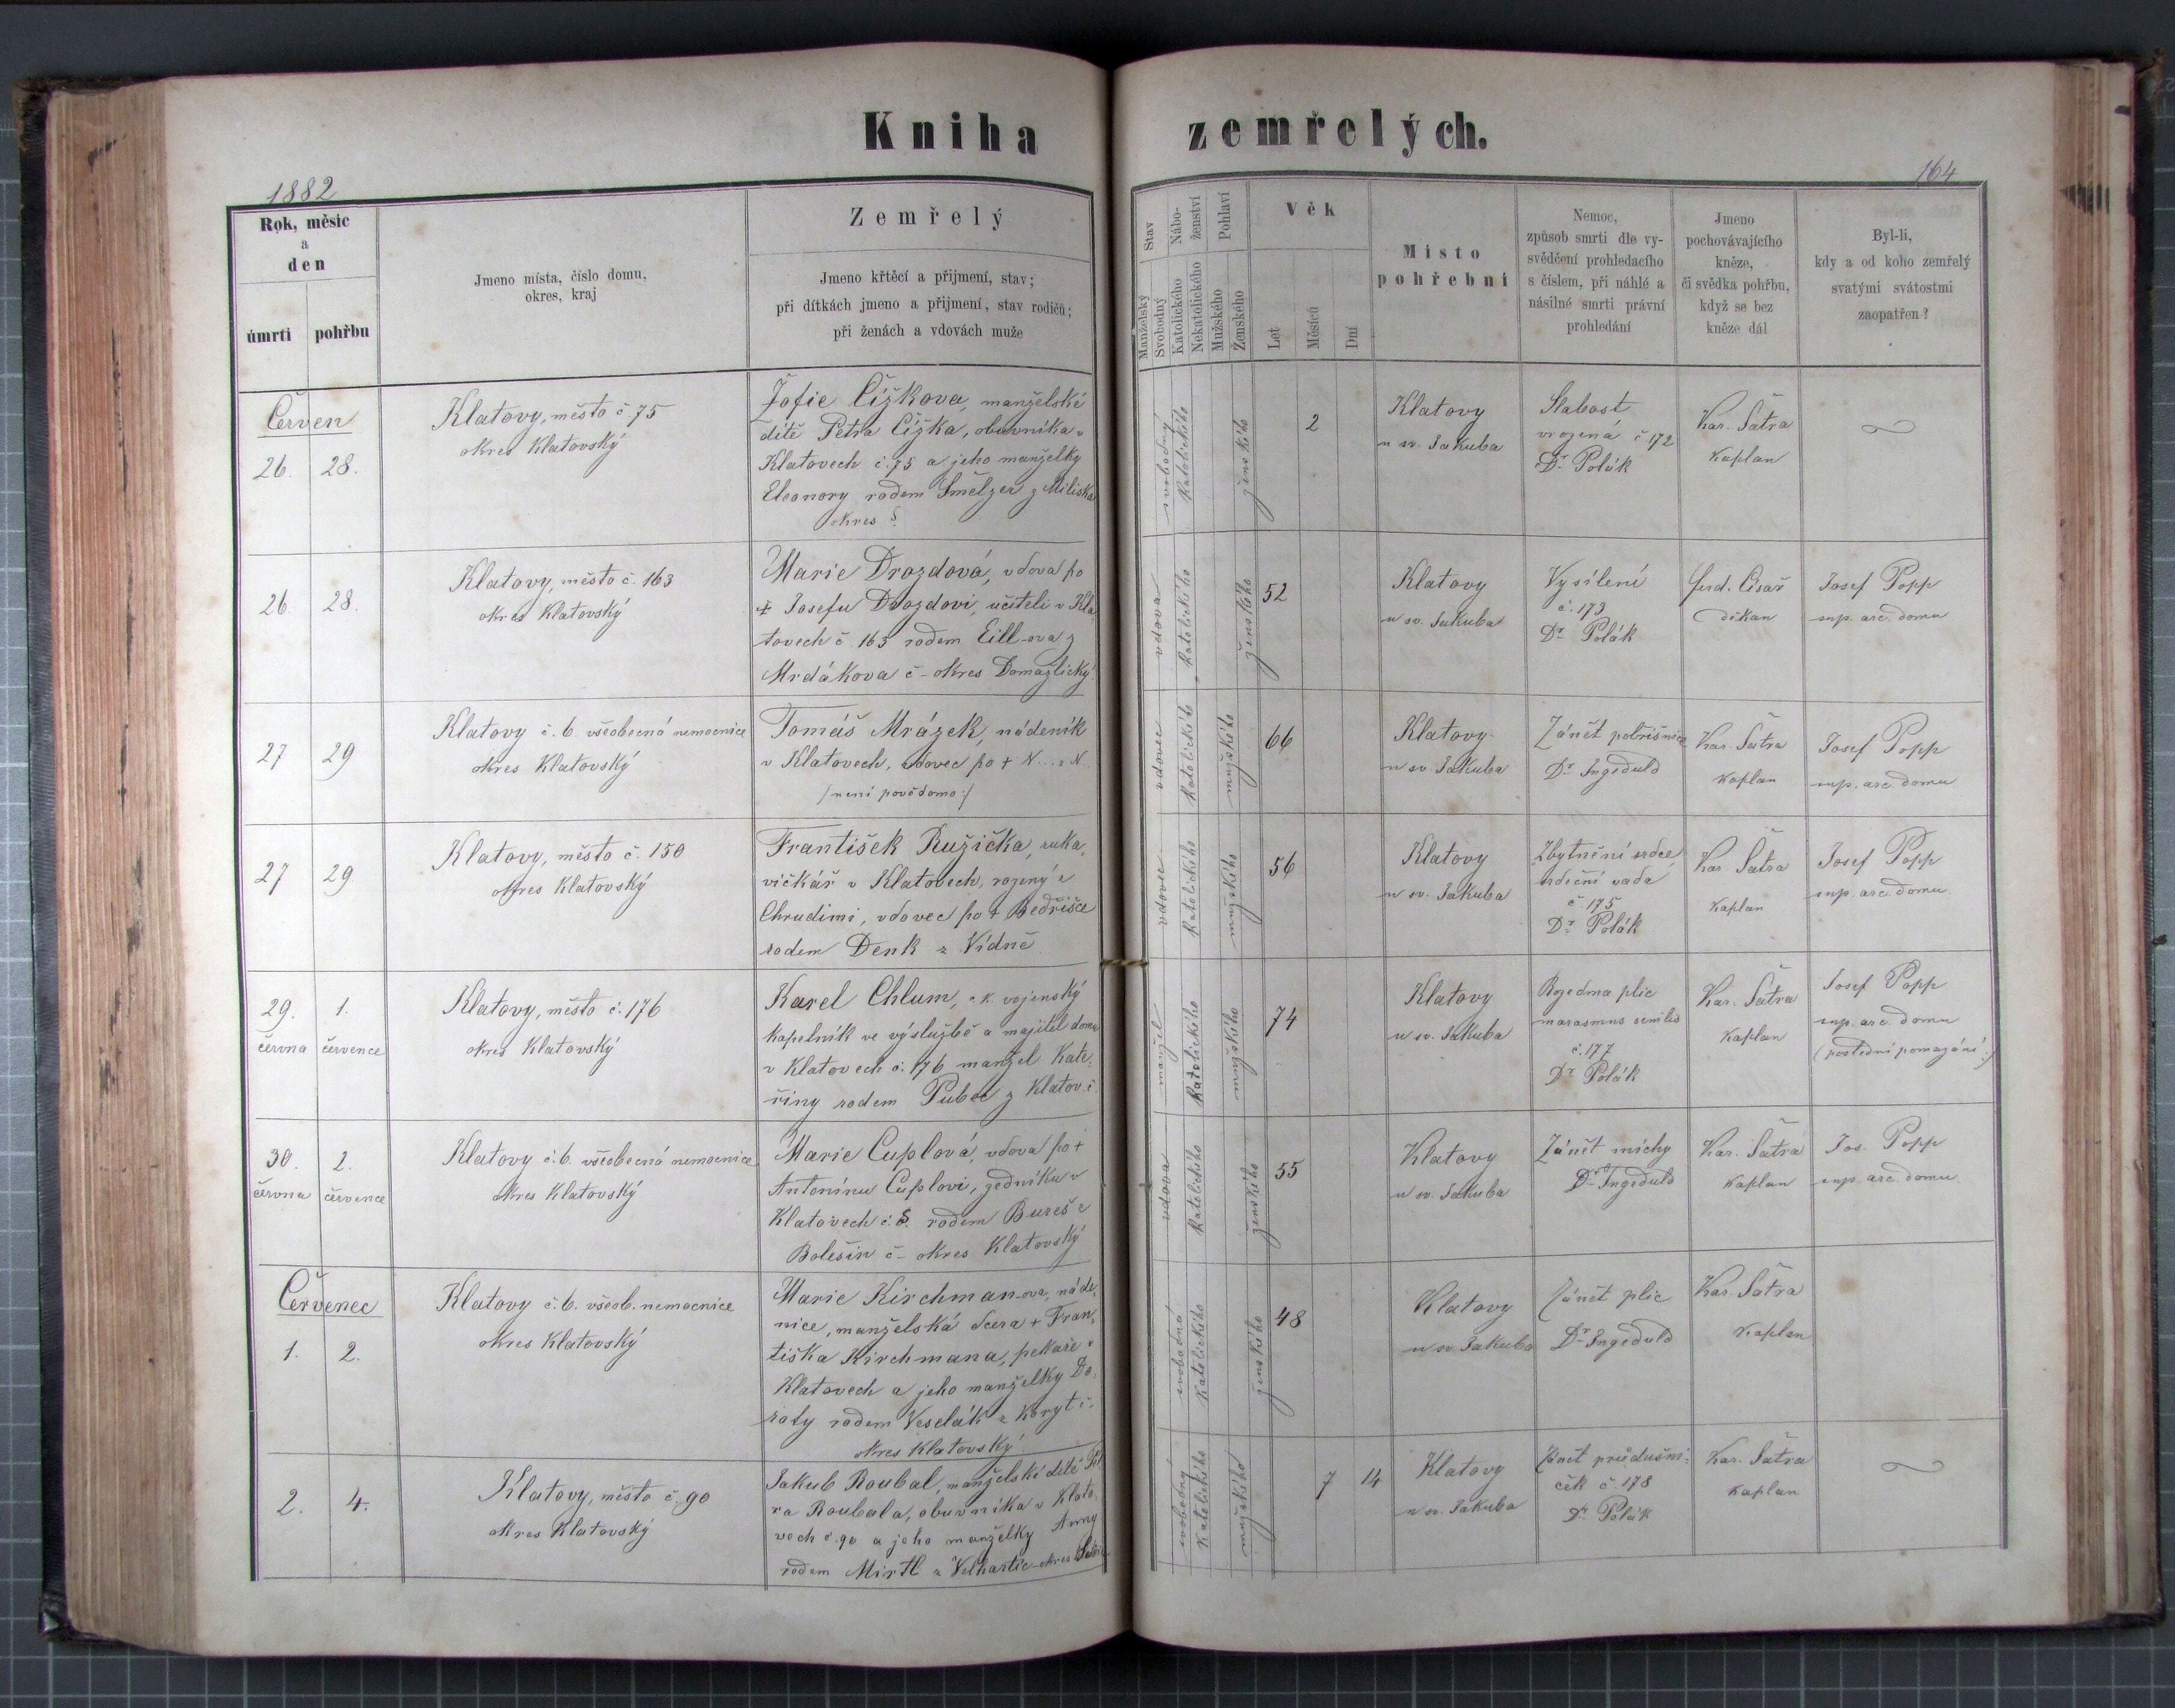 Kniha zemřelých.
1882
164
Rok, měsíc
a
den
úmrtí
pohřbu
Jmeno místa, číslo domu,
okres, kraj
Zemřelý
Jmeno křtěcí a přijmení, stav;
při dítkách jmeno a přijmení, stav rodičů;
při ženách a vdovách muže
Stav
Manželský
Svobodný
Nábo-
ženství
Katolického
Nekatolického
Pohlaví
Mužského
Ženského
Věk
Let
Měsíců
Dní
Místo
pohřební
Nemoc,
způsob smrti dle vy-
svědčení prohledacího
s číslem, při náhlé a
násilné smrti právní
prohledání
Jmeno
pochovávajícího
kněze,
či svědka pohřbu,
když se bez
kněze dál
Byl-li,
kdy a od koho zemřelý
svatými svátostmi
zaopatřen?
Červen
26. 28.
Klatovy, město č 75
okres Klatovský
Žofie Čížkova, manželské
dítě Petra Čížka, obuvníka v
Klatovech č. 75 a jeho manželky
Eleonory rodem Šmelzer z
okres
svobodný
katolického
ženského
2
Klatovy
u sv. Jakuba
Slabost
vrozená č 172
Dr Polák
Kar. Šatra
kaplan
26. 28.
Klatovy, město č. 163
okres Klatovský
Marie Drozdová, vdova po
+ Josefu Drozdovi, učiteli v Kla
tovech č 163 rodem Eill-ova z
Mrdákova č - okres Domažlický
vdova
katolického
ženského
52
Klatovy
u sv. Jakuba
Vysílení
č. 173
Dr Polák
Ferd. Císař
děkan
Josef Popp
sup. arc. domu
27 29
Klatovy č. 6. všeobecná nemocnice
okres Klatovský
Tomáš Mrázek, nádeník
v Klatovech, vdovec po + N... z N.
/není povědomo:/
vdovec
katolického
mužského
66
Klatovy
u sv. Jakuba
Zánět pobřišnice
Dr Ingeduld
Kar. Šatra
kaplan
Josef Popp
sup. arc. domu
27 29
Klatovy, město č. 150
okres Klatovský
František Ružička, ruka,
vičkář v Klatovech, rozený z
Chrudimi, vdovec po + Bedřišce
rodem Denk z Vídně
vdovec
katolického
mužského
56
Klatovy
u sv. Jakuba
Zbytnění srdce
srdeční vada
č 175
Dr Polák
Kar. Šatra
kaplan
Josef Popp
sup. arc. domu.
29. 1.
června července
Klatovy, město č. 176
okres Klatovský
Karel Chlum, c. k. vojenský
kapelník ve výslužbě a majitel domu
v Klatovech č. 176 manžel Kate,
řiny rodem z Klatov č.
manžel
katolického
mužského
74
Klatovy
u sv. Jakuba
Rozedma plic
marasmus senilis
č. 177
Dr Polák
Kar. Šatra
kaplan
Josef Popp
sup. arc. domu
(poslední pomazání:)
30. 2.
června července
Klatovy č. 6. všeobecná nemocnice
okres Klatovský
Marie Cuplová, vdova po +
Antonínu Cuplovi, zedníku v
Klatovech č. 8. rodem Bureš z
Bolešin č - okres Klatovský
vdova
katolického
ženského
55
Klatovy
u sv. Jakuba
Zánět míchy
Dr Ingeduld
Kar. Šatra
kaplan
Jos. Popp
sup. arc. domu.
Červenec
1. 2.
Klatovy č. 6. všeob. nemocnice
okres Klatovský
Marie Kirchman-ova, náde,
nice, manželská dcera + Fran,
tiška Kirchmana, pekaře v
Klatovech a jeho manželky Do,
roty rodem Veselák z Koryt č.
okres Klatovský
svobodná
katolického
ženského
48
Klatovy
u sv. Jakuba
Zánět plic
Dr Ingeduld
Kar. Šatra
kaplan
2. 4.
Klatovy, město č. 90
okres Klatovský
Jakub Roubal, manželské dítě Pet
ra Roubala, obuvníka v Klato,
vech č. 90 a jeho manželky Anny
rodem Mirtl z Velhartic okres
svobodný
katolického
mužského
7 14
Klatovy
u sv. Jakuba
Zánět průdušni:
ček č. 178
Dr Polák
Kar. Šatra
kaplan